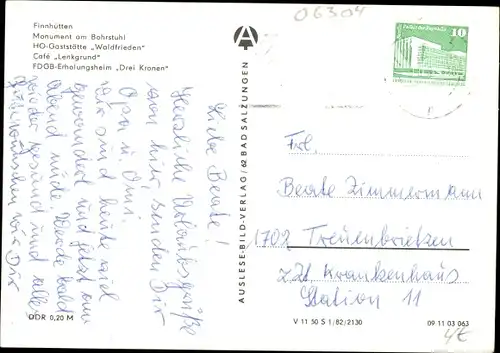 06304
Finnhütten
Monument am Bohrstuhl
HO-Gaststätte „Waldfrieden"
Café „Lenkgrund"
FDGB-Erholungsheim „Drei Kronen"
Liebe Beate!
Herzliche Urlaubsgrüße
von hier, senden Dir
Opa u. Omi.
Wir sind heute viel
gewandert und jetzt am
Abend müde. Werde bald
wieder gesund und alles
Gute wünschen wir Dir
DDR 0,20 M
AUSLESE-BILD-VERLAG/62 BAD SALZUNGEN
A
10
Frl.
Beate Zimmermann
1702 Treuenbrietzen
zZt Krankenhaus
Station 11
V 11 50 S 1/82/2130
09 11 03 063
4€